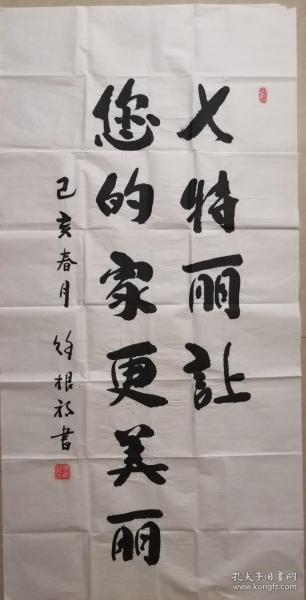 七特丽让
您的家更美丽
己亥春月 徐根初书
孔夫子旧书网